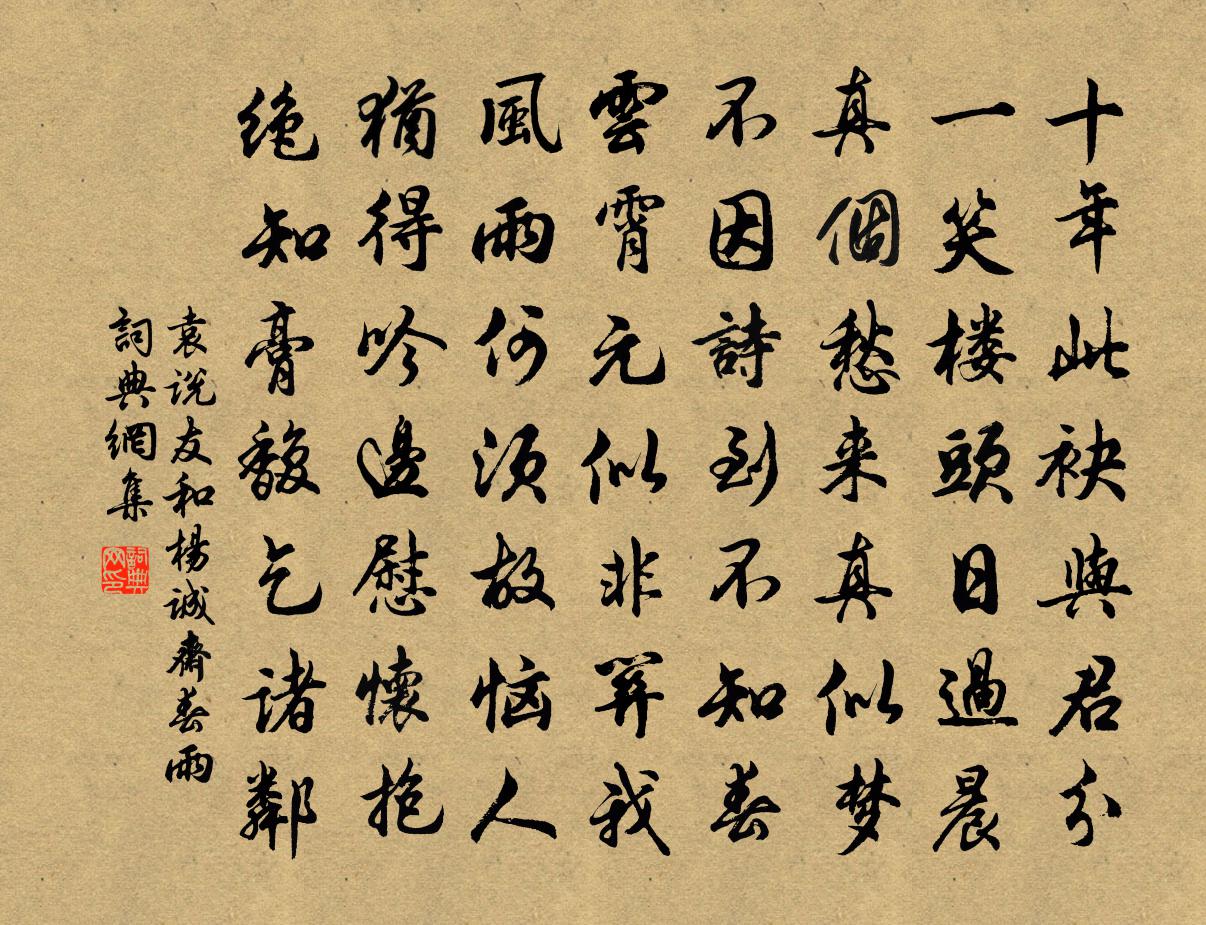 十年此袂與君分
一笑楼頭日過晨
真個愁来真似梦
不因詩到不知春
雲霄元似非筭我
風雨何須故恼人
猶得吟邊慰懷抱
绝知膏馥乞諸鄰
袁说友和楊诚齋春雨
詞典網集
詞典
网印